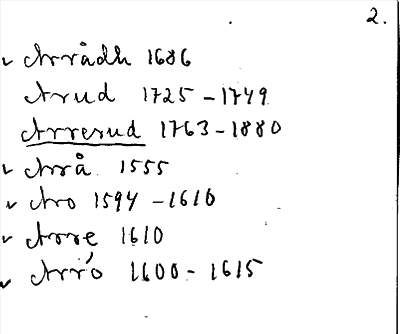 2.
✓ Arrådh 1686
Arud 1725 - 1749
Arrerud 1763 - 1880
✓ Arrå 1555
✓ Aro 1594 - 1610
✓ Arre 1610
✓ Arro 1600 - 1615